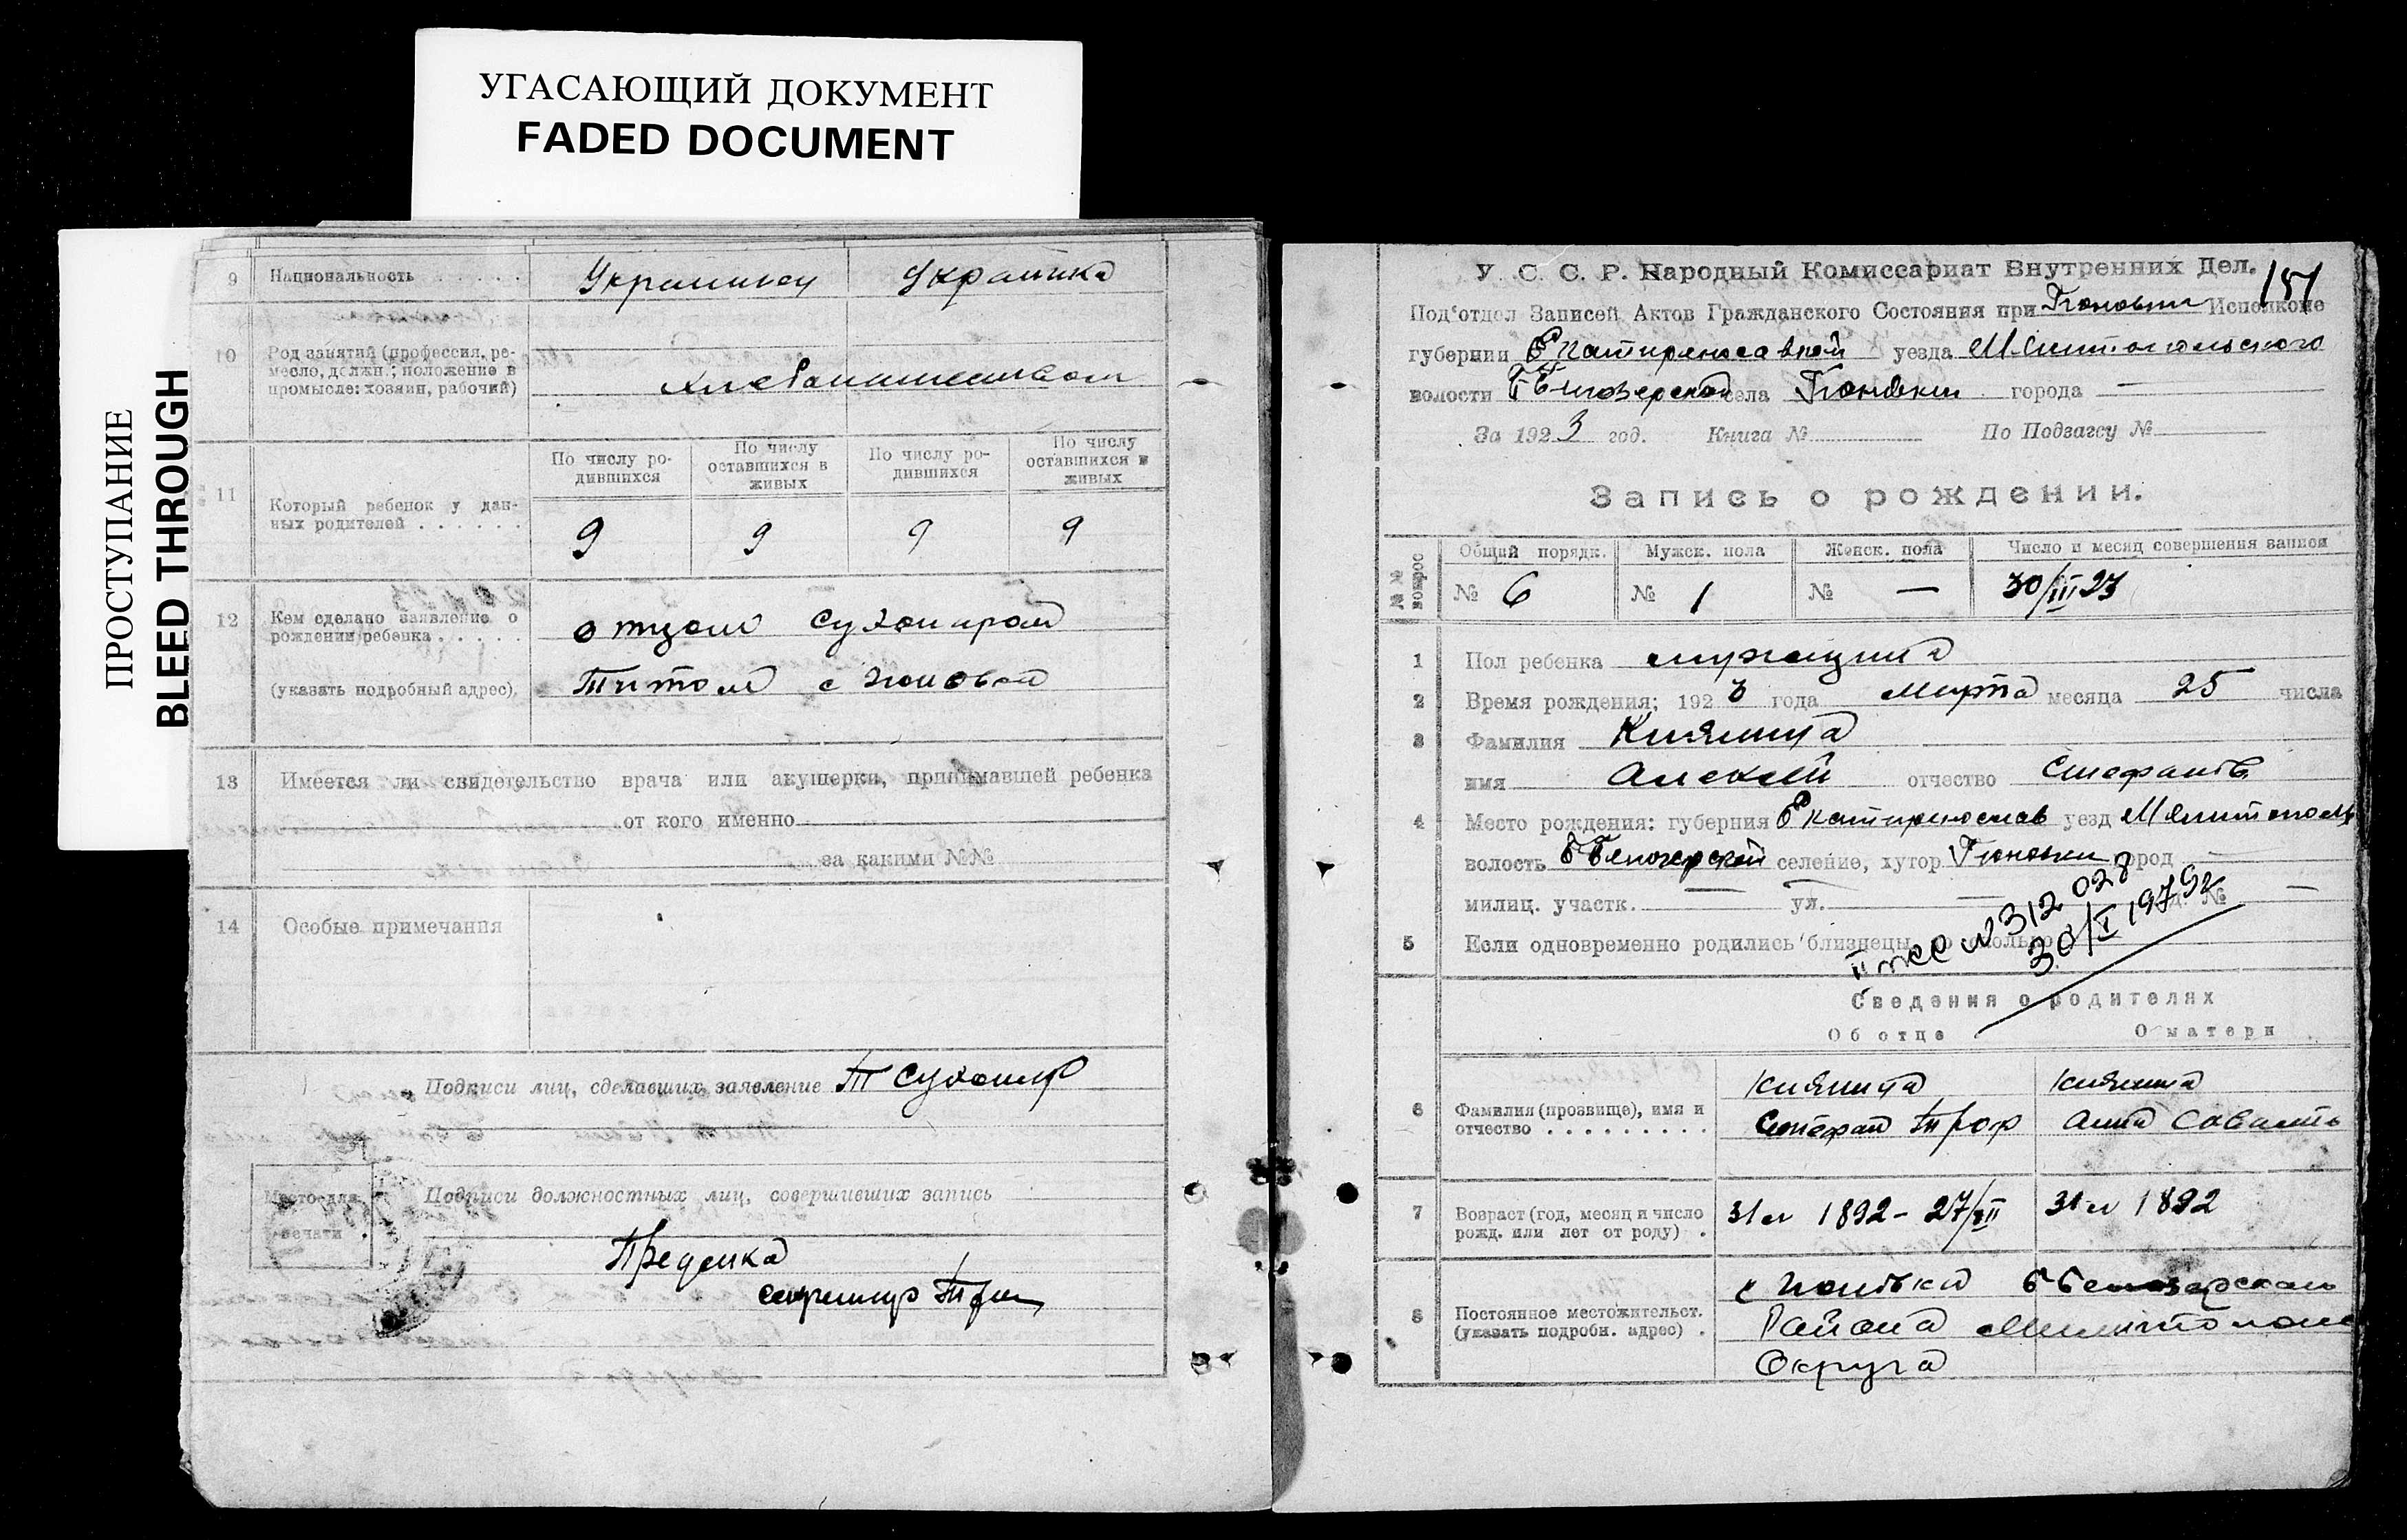 УГАСАЮЩИЙ ДОКУМЕНТ
FADED DOCUMENT
ПРОСТУПАНИЕ
BLEED THROUGH
9 Национальность . . . . . . Украинец Украинка
10 Род занятий (профессия, ре-
месло, должн.; положение в
промысле: хозяин, рабочий)
Хлебопашеством
11 Который ребенок у дан-
ных родителей . . . . . .
По числу ро-
дившихся
По числу
оставшихся в
живых
По числу ро-
дившихся
По числу
оставшихся в
живых
9 9 9 9
12 Кем сделано заявление о
рождении ребенка . . . . .
(указать подробный адрес).
отцом Сухоиром
Титом с
13 Имеется ли свидетельство врача или акушерки, принимавшей ребенка
от кого именно
за какими №№
14 Особые примечания
Подписи лиц, сделавших заявление Т Сухоир
Место для
печати
Подписи должностных лиц, совершивших запись
У. С. С. Р. Народный Комиссариат Внутренних Дел. 151
Под'отдел Записей Актов Гражданского Состояния при Исполкоме
губернии Екатиринославской уезда Мелитопольского
волости села города —
За 1923 год. Книга № По Подзагсу №
Запись о рождении.
№№ вопрос
Общий порядк. Мужск. пола Женск. пола Число и месяц совершения записи
№ 6 № 1 № — 30/III 23
1 Пол ребенка мужщина
2 Время рождения; 1923 года Марта месяца 25 числа
3 Фамилия Кияница
имя Алексей отчество
4 Место рождения: губерния Екатиринослав уезд Мелитополь
волость селение, хутор город —
милиц. участк. — ул. — д. № —
5 Если одновременно родились близнецы, то сколько
№ 312028
30/I 1979г
Сведения о родителях
Об отце О матери
6 Фамилия (прозвище), имя и
отчество . . . . . . . . .
Кияница
Стефан Троф
Кияница
Анна
7 Возраст (год, месяц и число
рожд. или лет от роду) .
31 л 1892 - 27/VII
31 л 1892
8 Постоянное местожительст.
(указать подробн. адрес) .
Района
Округа